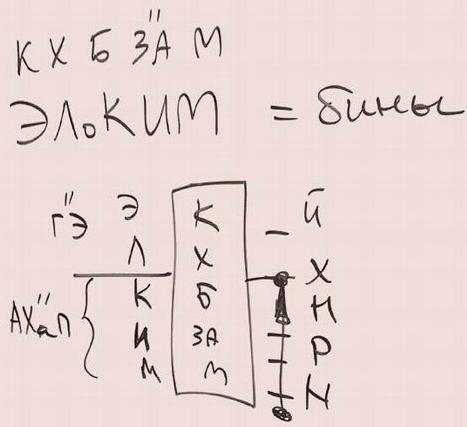 К Х Б З"А М
ЭЛоКИМ = бины
Г"Э Э К Й
Л Х Х
К Б Н
АХ"аП И ЗА Р
М М Н